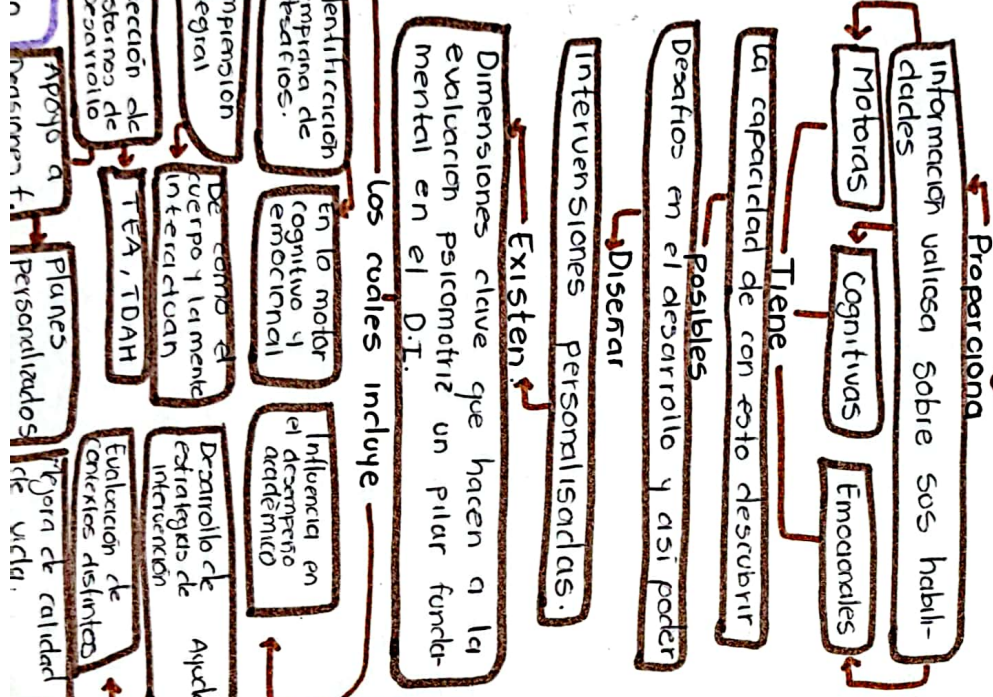 Proporciona
Información valiosa sobre sus habili-
dades
Motoras
Cognitivas
Emocionales
Tiene
la capacidad de con esto descubrir
posibles
Desafios en el desarrollo y asi poder
Diseñar
intervensiones personalisadas.
Existen:
Dimensiones clave que hacen a la
evaluación psicomotriz un pilar funda-
mental en el D.I.
los cuáles incluye
entificación
mprana de
esafios.
En lo motor
cognitivo y
emocional
Influencia en
el desempeño
académico
mprensión
egral
De como el
cuerpo y la mente
interactuan
Desarrollo de
estrategias de
intervención
Ayud
ección de
stornos de
esarrollo
TEA, TDAH
Evaluación de
contextos distintos
Apoyo a
Planes
personalizados
Mejora de calidad
de vida.